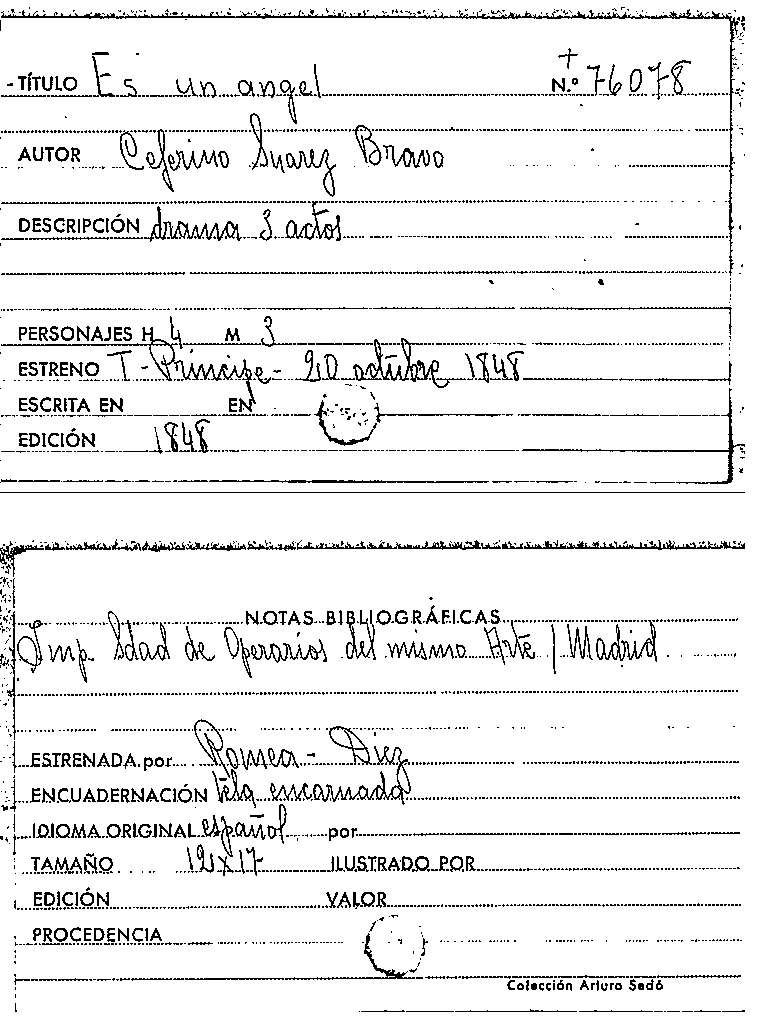 - TÍTULO Es un angel + N.º 76078
AUTOR Ceferino Suarez Bravo
DESCRIPCIÓN drama 3 actos
PERSONAJES H 4 M 3
ESTRENO T - Principe - 20 octubre 1848
ESCRITA EN EN
EDICIÓN 1848
NOTAS BIBLIOGRÁFICAS
Imp. Sdad de Operarios del mismo Arte / Madrid
ESTRENADA por Romea - Diez
ENCUADERNACIÓN tela encarnada
IDIOMA ORIGINAL español por
TAMAÑO 12x17 ILUSTRADO POR
EDICIÓN VALOR
PROCEDENCIA
Colección Arturo Sedó